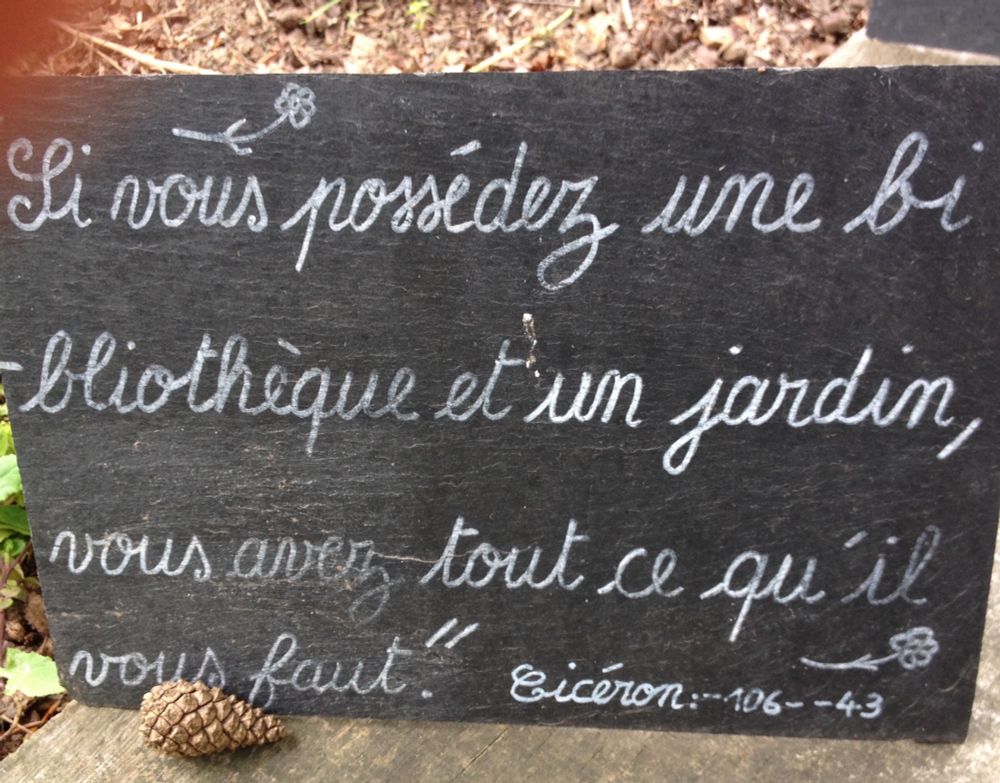 Si vous possédez une bi
-bliothèque et un jardin,
vous avez tout ce qu'il
vous faut."
Cicéron:-106--43